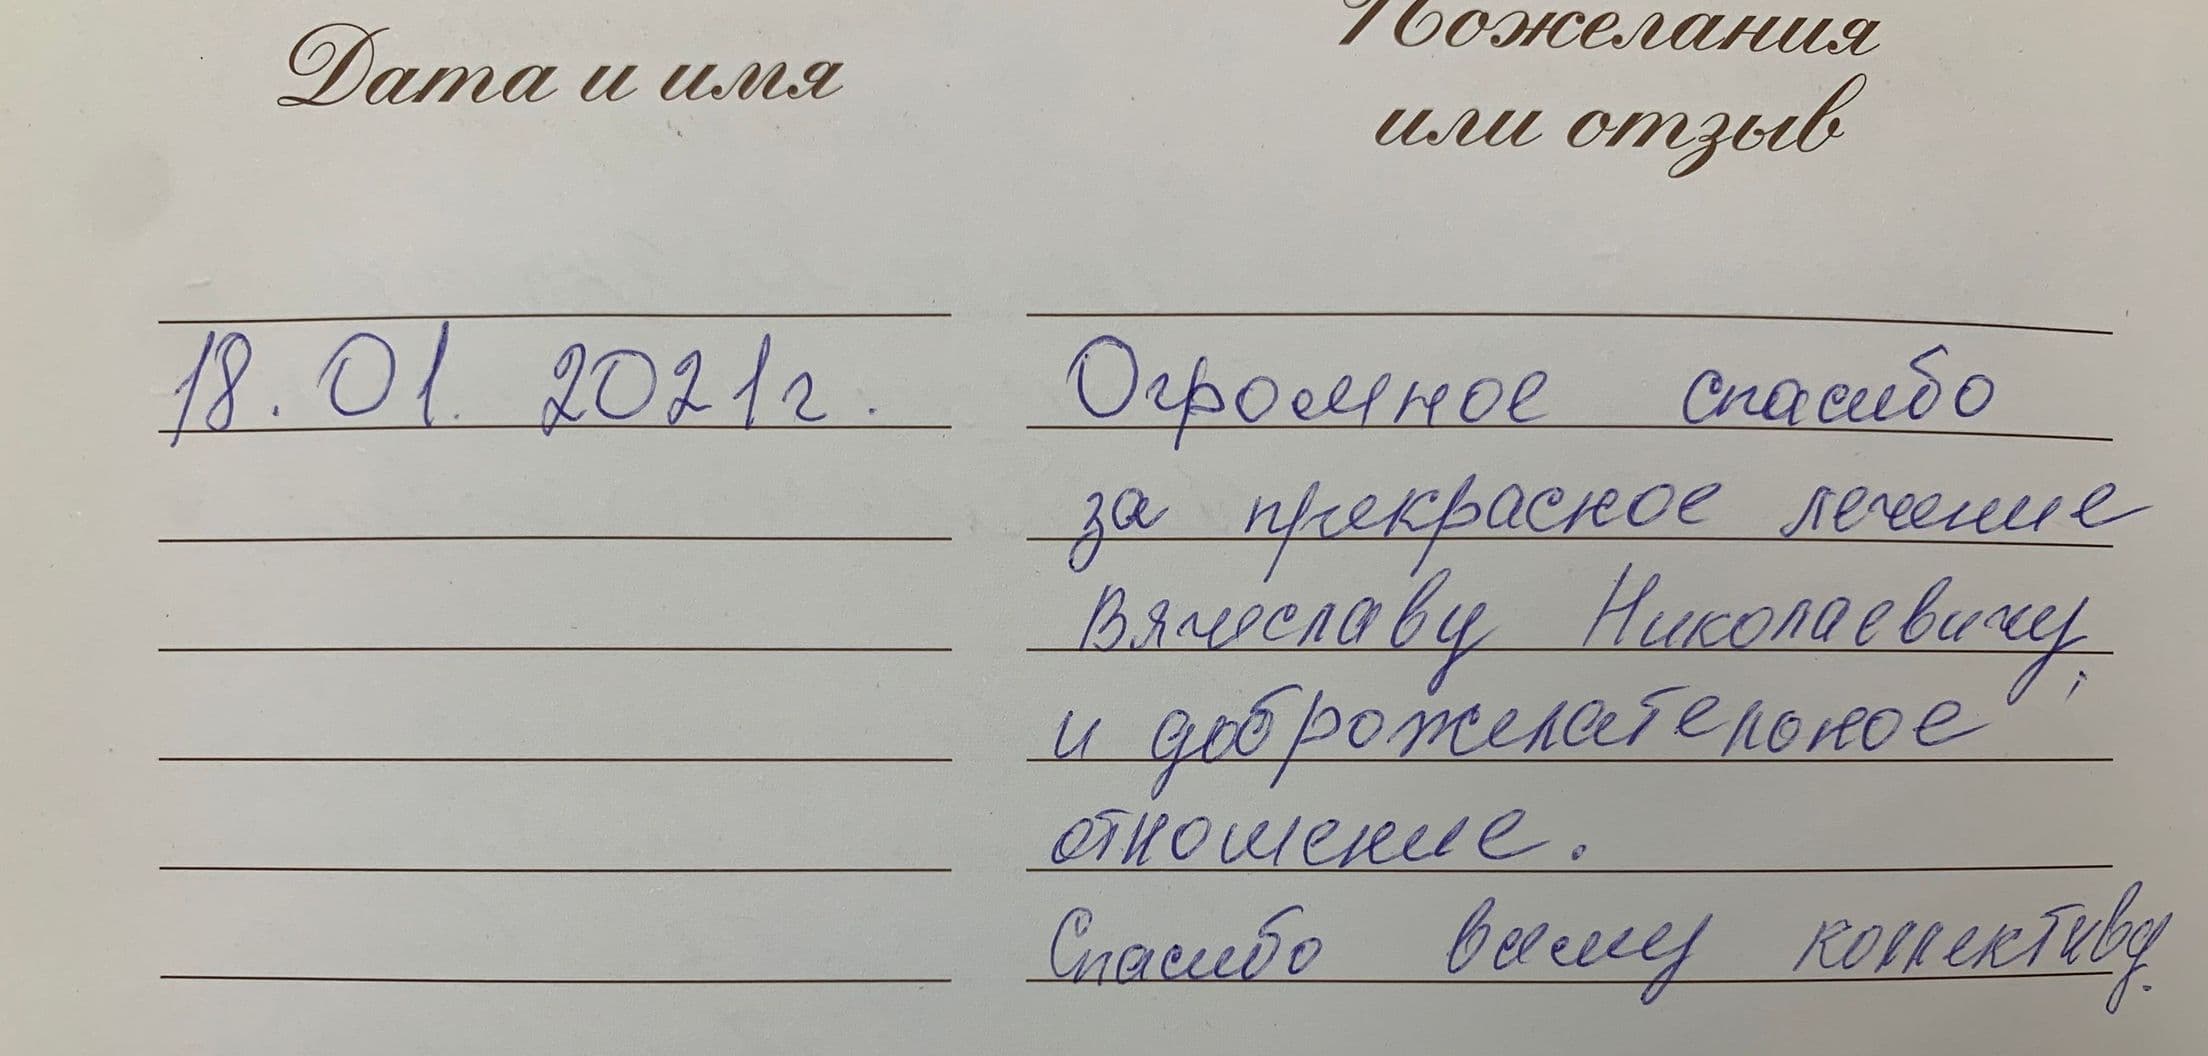 Дата и имя
Пожелания
или отзыв
18.01.2021г.
Огромное спасибо
за прекрасное лечение
Вячеславу Николаевичу,
и доброжелательное
отношение.
Спасибо вашему коллективу.